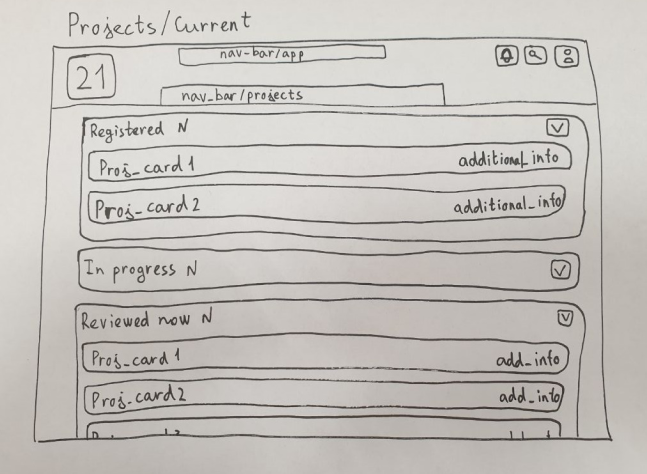 Projects/Current
nav-bar/app
21
nav_bar/projects
Registered N
Proj_card 1 additional_info
Proj_card 2 additional_info
In progress N
Reviewed now N
Proj_card 1 add_info
Proj_card 2 add_info